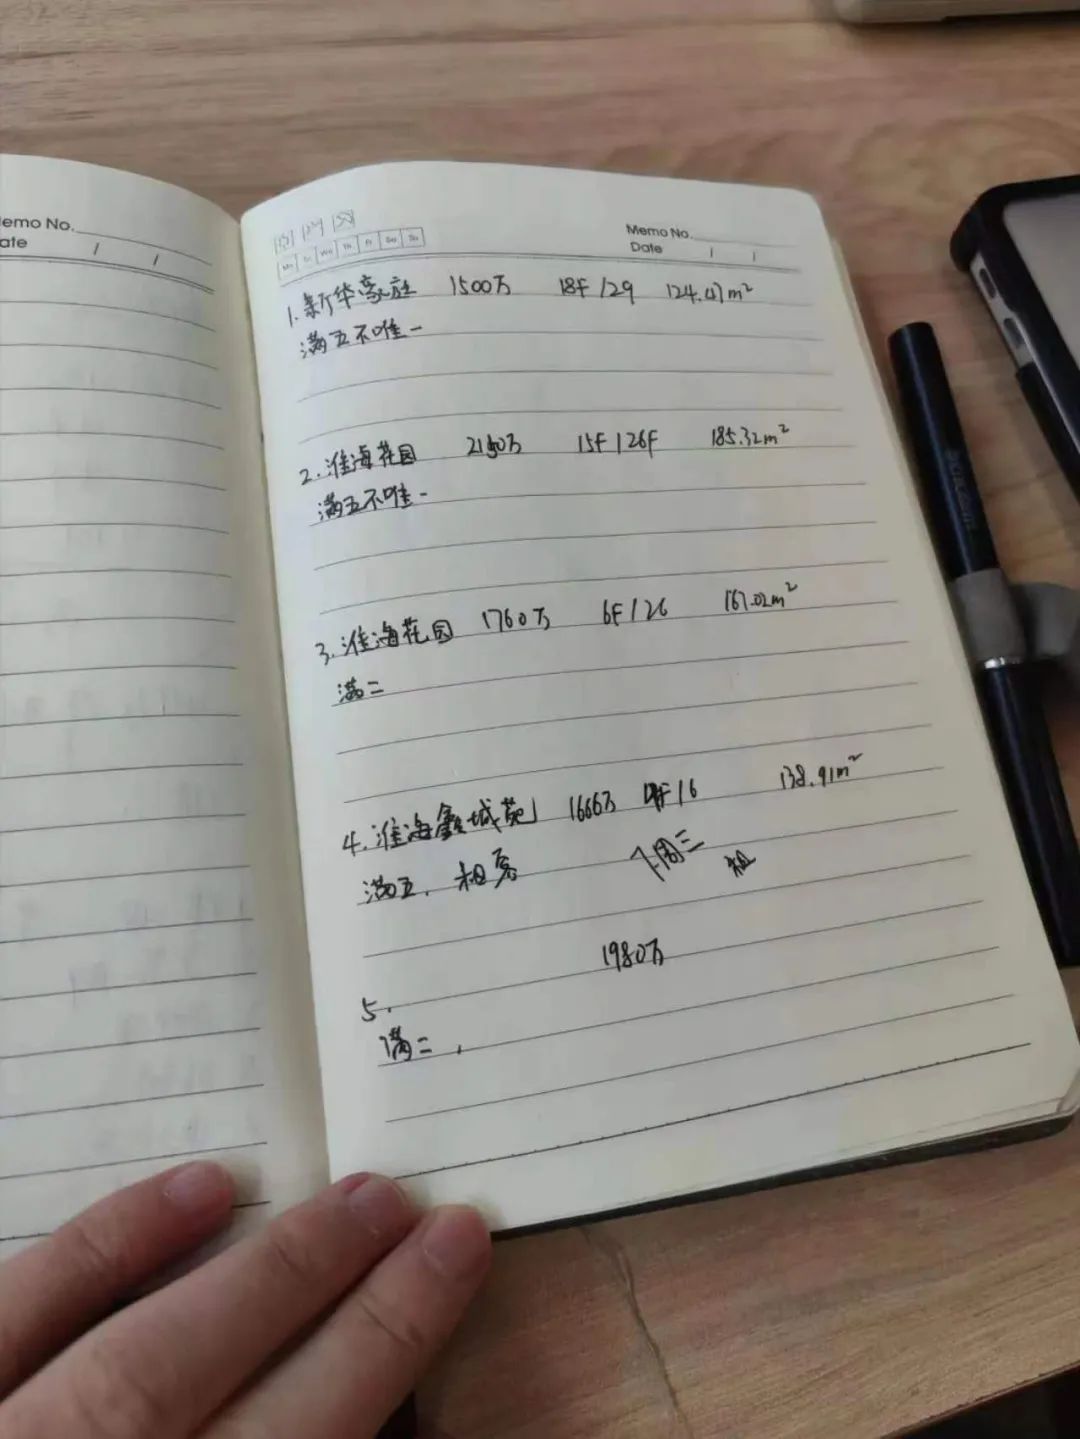 emo No.
ate / /
Memo No.
Date / /
Mo Tu We Th Fr Sa Su
1. 新华豪庭 1500万 18F/29 124.47m²
满五不唯一
2. 淮海花园 2150万 15F/26F 185.32m²
满五不唯一
3. 淮海花园 1760万 6F/26 167.02m²
满二
4. 淮海鑫城苑 1666万 F/16 138.91m²
满五. 租客 下周三 租
1980万
5.
满二,